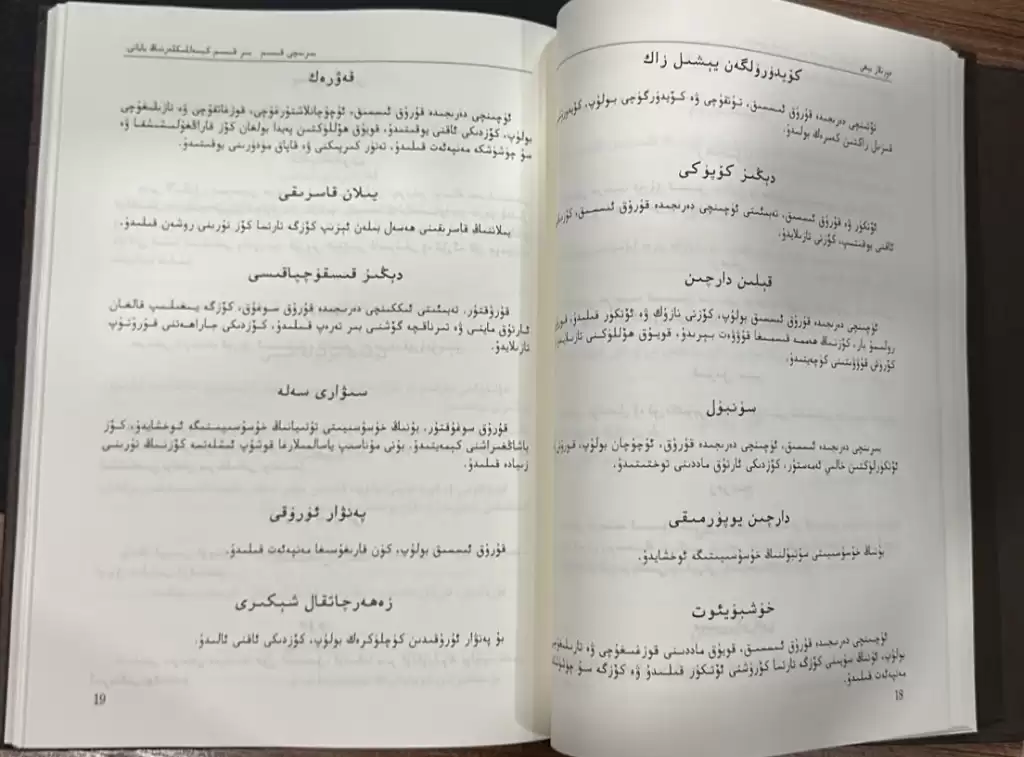 كۆيدۈرۈلگەن يېشىل زاك
تۆتىنچى دەرىجىدە قۇرۇق ئىسسىق، تۇتقۇچى ۋە كۆيدۈرگۈچى بولۇپ،
قىزىل زاكتىن كەمرەك بولىدۇ.
دېڭىز كۆپۈكى
ئۆتكۈر ۋە قۇرۇق ئىسسىق، تەبىئىتى ئۈچىنچى دەرىجىدە قۇرۇق ئىسسىق،
ئاقنى يوقىتىپ، كۆزنى تازىلايدۇ.
قېلىن دارچىن
ئۈچىنچى دەرىجىدە قۇرۇق ئىسسىق بولۇپ، كۆزنى نازۇك ۋە ئۆتكۈر قىلىدۇ،
رولىمۇ بار، كۆزنىڭ ھەممە قىسمىغا قۇۋۋەت بېرىدۇ، قويۇق ھۆللۈكنى
كۆرۈش قۇۋۋىتىنى كۈچەيتىدۇ.
سۇنبۇل
بىرىنچى دەرىجىدە ئىسسىق، ئۈچىنچى دەرىجىدە قۇرۇق، ئۇچۇچان بولۇپ،
ئۆتكۈرلۈكتىن خالىي ئەمەستۇر، كۆزدىكى ئارتۇق ماددىنى توختىتىدۇ.
دارچىن يوپۇرمىقى
بۇنىڭ خۇسۇسىيىتى سۇنبۇلنىڭ خۇسۇسىيىتىگە ئوخشايدۇ.
خۇشبۇيئوت
ئۈچىنچى دەرىجىدە قۇرۇق ئىسسىق، قويۇق ماددىنى قوزغىغۇچى ۋە
بولۇپ، ئۇنىڭ سۈيىنى كۆزگە تارتسا كۆرۈشنى ئۆتكۈر قىلىدۇ ۋە كۆزگە سۇ
مەنپەئەت قىلىدۇ.
18
بىرىنچى قىسىم بىر قىسىم كېسەللىكلەرنىڭ بايانى
قەۋرەك
ئۈچىنچى دەرىجىدە قۇرۇق ئىسسىق، ئۇچۇچانلاشتۇرغۇچى، قوزغاتقۇچى ۋە تازىلىغۇچى
بولۇپ، كۆزدىكى ئاقنى يوقىتىدۇ، قويۇق ھۆللۈكتىن پەيدا بولغان كۆز قاراڭغۇلىشىشغا ۋە
سۇ چۈشۈشكە مەنپەئەت قىلىدۇ، تەتۈر كىرپىكنى ۋە قاپاق مۆدۈرىنى يوقىتىدۇ.
يىلان قاسرىقى
يىلاننىڭ قاسرىقىنى ھەسەل بىلەن ئېزىپ كۆزگە تارتسا كۆز نۇرىنى روشەن قىلىدۇ.
دېڭىز قىسقۇچپاقىسى
قۇرۇقتۇر، تەبىئىتى ئىككىنچى دەرىجىدە قۇرۇق سوغۇق، كۆزگە يىغىلىپ قالغان
ئارتۇق ماينى ۋە تىرناقچە گۆشنى بىر تەرەپ قىلىدۇ، كۆزدىكى جاراھەتنى قۇرۇتۇپ
تازىلايدۇ.
سىۋارى سەلە
قۇرۇق سوغۇقتۇر، بۇنىڭ خۇسۇسىيىتى تۇتىيانىڭ خۇسۇسىيىتىگە ئوخشايدۇ، كۆز
ياشاڭغىراشنى كېمەيتىدۇ، بۇنى مۇناسىپ ياسالمىلارغا قوشۇپ ئىشلەتسە كۆزنىڭ نۇرىنى
زىيادە قىلىدۇ.
پەنۋار ئۇرۇقى
قۇرۇق ئىسسىق بولۇپ، كۈن قارىغۇسىغا مەنپەئەت قىلىدۇ.
زەھەرچاتقال شېكىرى
بۇ پەنۋار ئۇرۇقىدىن كۈچلۈكرەك بولۇپ، كۆزدىكى ئاقنى ئالىدۇ.
19